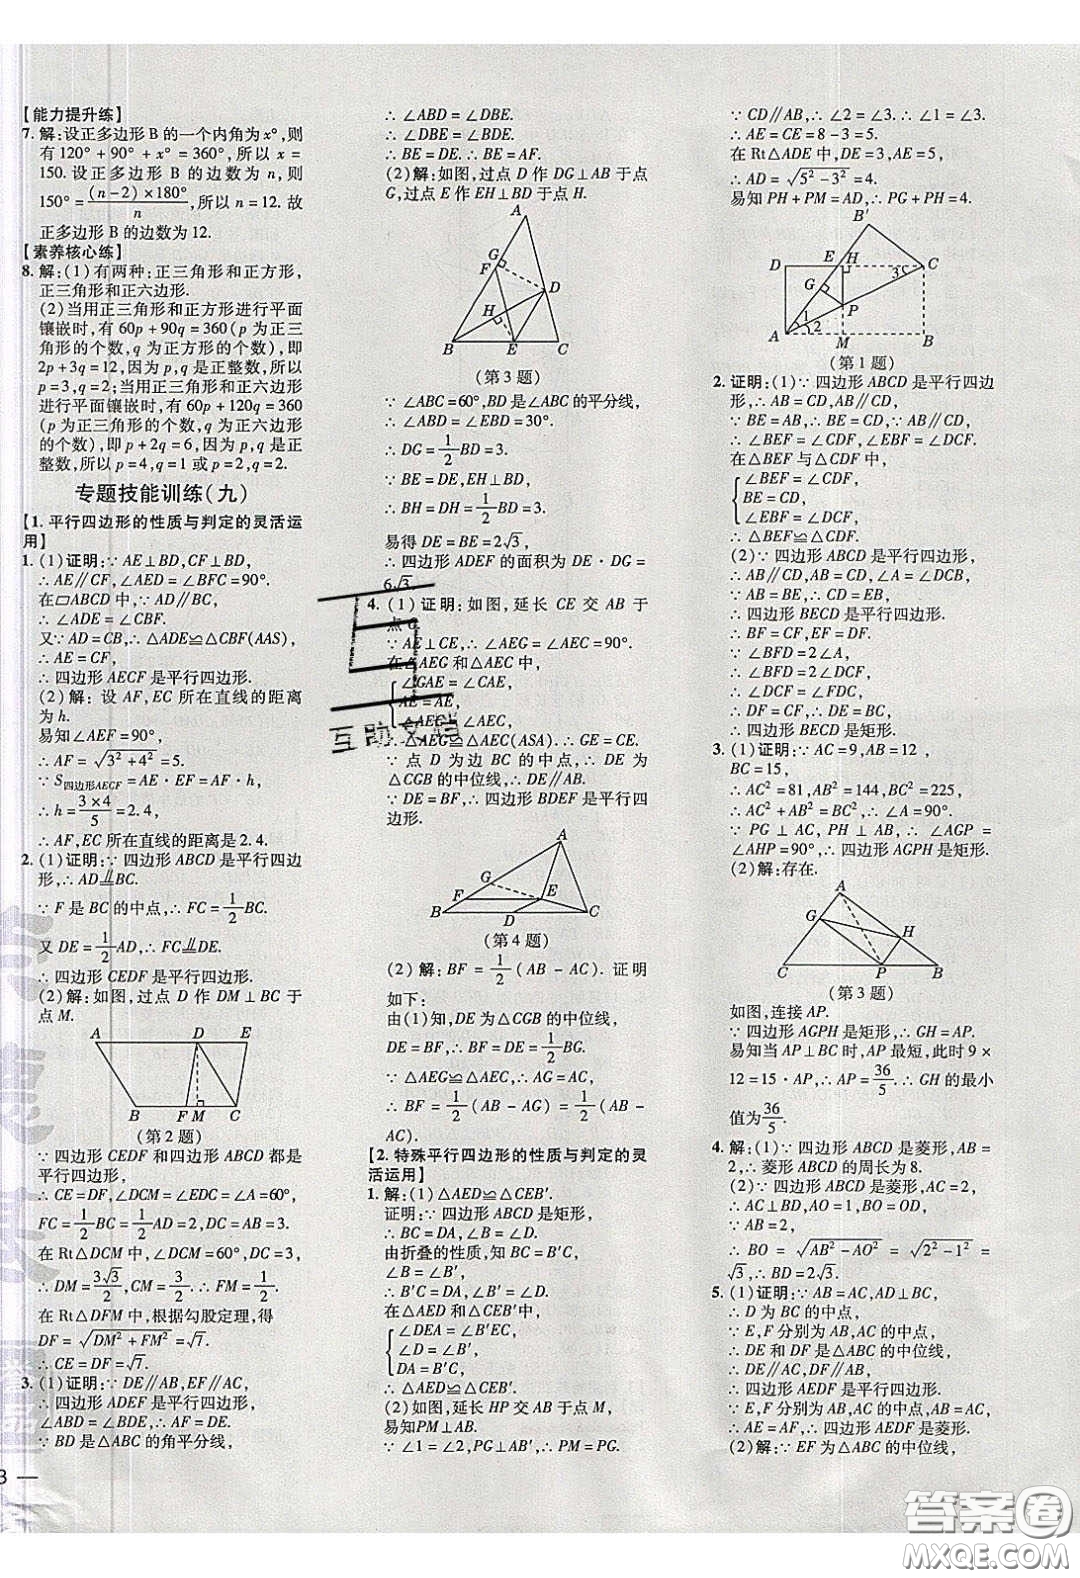 【能力提升练】
7. 解:设正多边形 B 的一个内角为 x°,则
有 120° + 90° + x° = 360°, 所以 x =
150. 设正多边形 B 的边数为 n, 则
150° = (n-2)×180°/n, 所以 n = 12. 故
正多边形 B 的边数为 12.
【素养核心练】
8. 解:(1)有两种:正三角形和正方形,
正三角形和正六边形.
(2)当用正三角形和正方形进行平面
镶嵌时,有 60p + 90q = 360(p 为正三
角形的个数,q 为正方形的个数),即
2p + 3q = 12, 因为 p, q 是正整数, 所以
p = 3, q = 2; 当用正三角形和正六边形
进行平面镶嵌时,有 60p + 120q = 360
(p 为正三角形的个数,q 为正六边形
的个数),即 p + 2q = 6, 因为 p, q 是正
整数,所以 p = 4, q = 1 或 p = 2, q = 2.
专题技能训练(九)
【1. 平行四边形的性质与判定的灵活运
用】
1. (1)证明:∵ AE⊥BD, CF⊥BD,
∴ AE∥CF, ∠AED = ∠BFC = 90°.
在▱ABCD 中,∵ AD∥BC,
∴ ∠ADE = ∠CBF.
又∵ AD = CB, ∴ △ADE≌△CBF(AAS),
∴ AE = CF,
∴ 四边形 AECF 是平行四边形.
(2)解: 设 AF, EC 所在直线的距离
为 h.
易知 ∠AEF = 90°,
∴ AF = √(3²+4²) = 5.
∵ S四边形AECF = AE · EF = AF · h,
∴ h = 3×4/5 = 2.4,
∴ AF, EC 所在直线的距离是 2.4.
2. (1)证明:∵ 四边形 ABCD 是平行四边
形,∴ AD∥=BC.
∵ F 是 BC 的中点,∴ FC = 1/2 BC.
又 DE = 1/2 AD, ∴ FC∥=DE.
∴ 四边形 CEDF 是平行四边形.
(2)解:如图,过点 D 作 DM⊥BC 于
点 M.
A D E
B F M C
(第 2 题)
∵ 四边形 CEDF 和四边形 ABCD 都是
平行四边形,
∴ CE = DF, ∠DCM = ∠ECD = ∠A = 60°,
FC = 1/2 BC = 1/2 AD = 2, DC = AB = 3.
在 Rt△DCM 中,∠DCM = 60°, DC = 3,
∴ DM = 3√3/2, CM = 3/2. ∴ FM = 1/2.
在 Rt△DFM 中,根据勾股定理,得
DF = √(DM² + FM²) = √7.
∴ CE = DF = √7.
3. (1)证明:∵ DE∥AB, EF∥AC,
∴ 四边形 ADEF 是平行四边形,
∠ABD = ∠BDE, ∴ AF = DE.
∵ BD 是△ABC 的角平分线,
∴ ∠ABD = ∠DBE.
∴ ∠DBE = ∠BDE.
∴ BE = DE. ∴ BE = AF.
(2)解:如图,过点 D 作 DG⊥AB 于点
G,过点 E 作 EH⊥BD 于点 H.
A
G
F
D
H
B E C
(第 3 题)
∵ ∠ABC = 60°, BD 是∠ABC 的平分线,
∴ ∠ABD = ∠EBD = 30°.
∴ DG = 1/2 BD = 3.
∵ BE = DE, EH⊥BD,
∴ BH = DH = 1/2 BD = 3.
易得 DE = BE = 2√3,
∴ 四边形 ADEF 的面积为 DE · DG =
6√3.
4. (1)证明:如图,延长 CE 交 AB 于
点 G.
∵ AE⊥CE, ∴ ∠AEG = ∠AEC = 90°.
在△AEG 和△AEC 中,
∠GAE = ∠CAE,
AE = AE,
∠AEG = ∠AEC,
∴ △AEG≌△AEC(ASA). ∴ GE = CE.
∵ 点 D 为边 BC 的中点, ∴ DE 为
△CGB 的中位线,∴ DE∥AB.
∵ DE = BF, ∴ 四边形 BDEF 是平行四
边形.
A
G
F E
B D C
(第 4 题)
(2)解: BF = 1/2 (AB - AC). 证明
如下:
由(1)知,DE 为△CGB 的中位线,
DE = BF, ∴ BF = DE = 1/2 BG.
∵ △AEG≌△AEC, ∴ AG = AC.
∴ BF = 1/2 (AB - AG) = 1/2 (AB -
AC).
【2. 特殊平行四边形的性质与判定的灵
活运用】
1. 解:(1)△AED≌△CEB'.
证明:∵ 四边形 ABCD 是矩形,
∴ BC = DA, ∠B = ∠D.
由折叠的性质,知 BC = B'C,
∠B = ∠B',
∴ B'C = DA, ∠B' = ∠D.
在△AED 和△CEB'中,
∠DEA = ∠B'EC,
∠D = ∠B',
DA = B'C,
∴ △AED≌△CEB'.
(2)如图,延长 HP 交 AB 于点 M,
易知PM⊥AB.
∵ ∠1 = ∠2, PG⊥AB', ∴ PM = PG.
∵ CD∥AB, ∴ ∠2 = ∠3, ∴ ∠1 = ∠3.
∴ AE = CE = 8 - 3 = 5.
在 Rt△ADE 中,DE = 3, AE = 5,
∴ AD = √(5² - 3²) = 4.
易知 PH + PM = AD, ∴ PG + PH = 4.
B'
D E H C
3
G
P
1
2
A M B
(第 1 题)
2. 证明:(1)∵ 四边形 ABCD 是平行四边
形,∴ AB = CD, AB∥CD.
∵ BE = AB, ∴ BE = CD. ∵ AB∥CD,
∴ ∠BEF = ∠CDF, ∠EBF = ∠DCF.
在△BEF 与△CDF 中,
∠BEF = ∠CDF,
BE = CD,
∠EBF = ∠DCF,
∴ △BEF≌△CDF.
(2)∵ 四边形 ABCD 是平行四边形,
∴ AB∥CD, AB = CD, ∠A = ∠DCB,
∵ AB = BE, ∴ CD = EB,
∴ 四边形 BECD 是平行四边形.
∴ BF = CF, EF = DF.
∵ ∠BFD = 2∠A,
∴ ∠BFD = 2∠DCF,
∴ ∠DCF = ∠FDC,
∴ DF = CF, ∴ DE = BC,
∴ 四边形 BECD 是矩形.
3. (1)证明:∵ AC = 9, AB = 12 ,
BC = 15,
∴ AC² = 81, AB² = 144, BC² = 225,
∴ AC² + AB² = BC², ∴ ∠A = 90°.
∵ PG⊥AC, PH⊥AB, ∴ ∠AGP =
∠AHP = 90°, ∴ 四边形 AGPH 是矩形.
(2)解:存在.
A
G
H
C P B
(第 3 题)
如图,连接 AP.
∵ 四边形 AGPH 是矩形,∴ GH = AP.
易知当 AP⊥BC 时,AP 最短,此时 9 ×
12 = 15 · AP, ∴ AP = 36/5. ∴ GH 的最小
值为 36/5.
4. 解:(1)∵ 四边形 ABCD 是菱形,AB =
2, ∴ 菱形 ABCD 的周长为 8.
(2)∵ 四边形 ABCD 是菱形,AC = 2,
∴ AC⊥BD, AO = 1, BO = OD,
∵ AB = 2,
∴ BO = √(AB² - AO²) = √(2² - 1²) =
√3, ∴ BD = 2√3.
5. (1)证明:∵ AB = AC, AD⊥BC,
∴ D 为 BC 的中点,
∵ E, F 分别为 AB, AC 的中点,
∴ DE 和 DF 是△ABC 的中位线,
∴ DE∥AC, DF∥AB,
∴ 四边形 AEDF 是平行四边形.
∵ E, F 分别为 AB, AC 的中点, AB = AC,
∴ AE = AF, ∴ 四边形 AEDF 是菱形.
(2)解:∵ EF 为△ABC 的中位线,
3 —
互助文档
答案圈
MXQE.COM